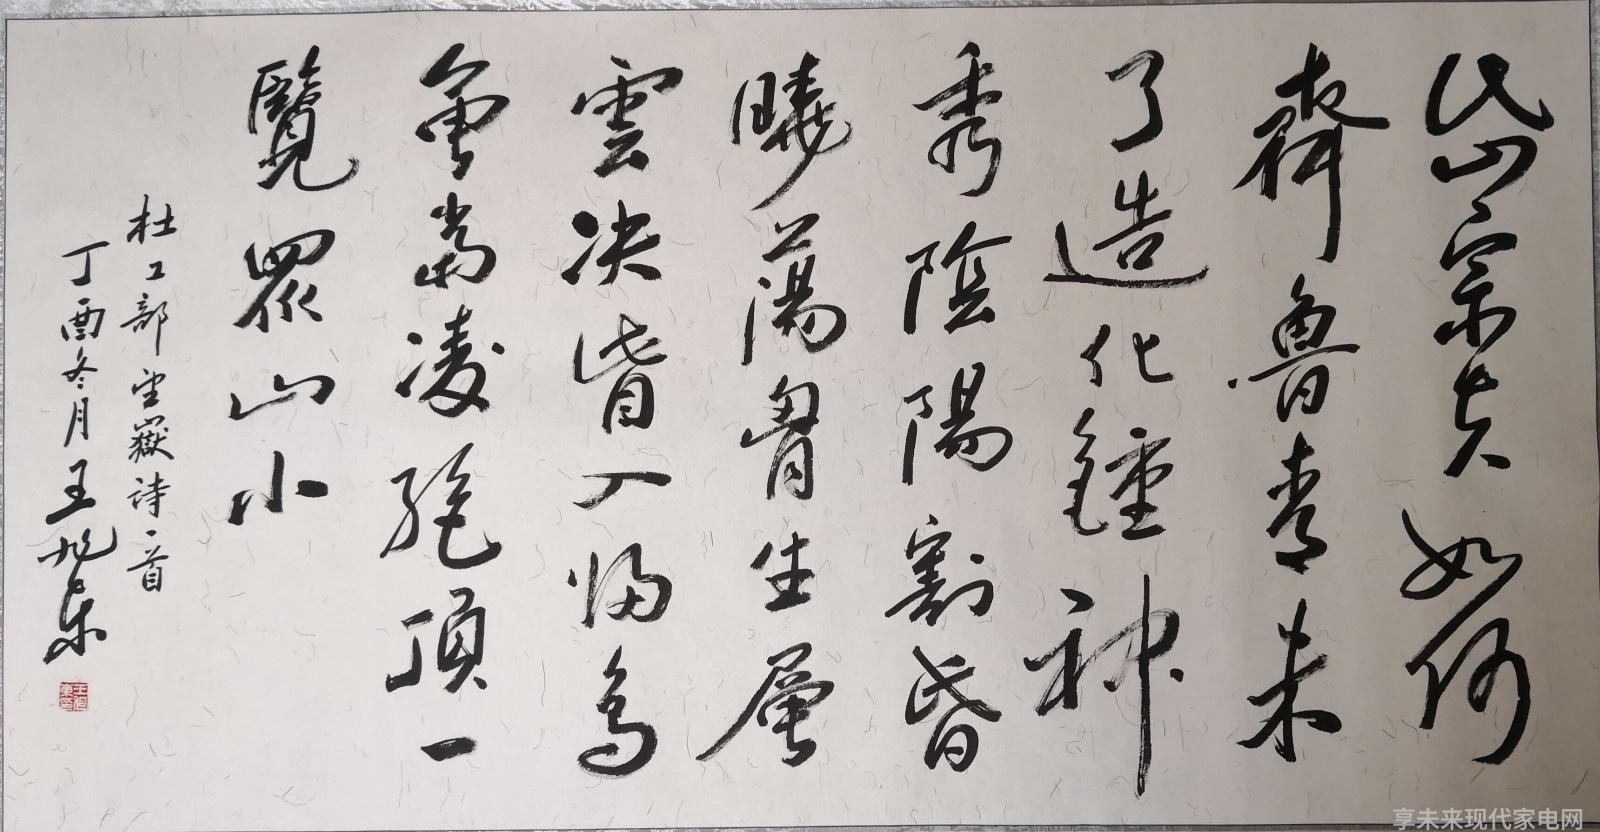 岱宗夫如何
齊魯青未
了造化鍾神
秀陰陽割昏
曉蕩胷生層
雲决眥入歸鳥
會當凌絕頂一
覽眾山小
杜工部望嶽詩一首
丁酉冬月王旭东
王旭東印
享未来现代家电网